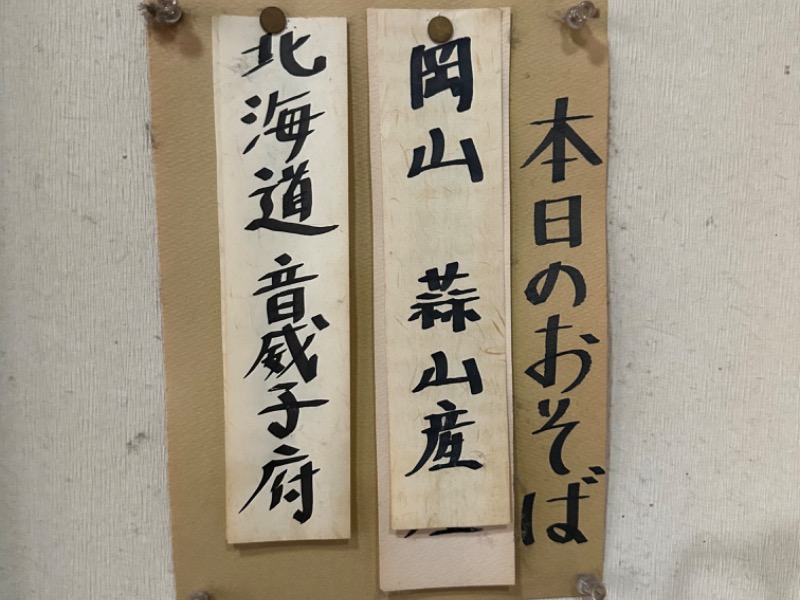 本日のおそば
岡山 蒜山産
北海道 音威子府